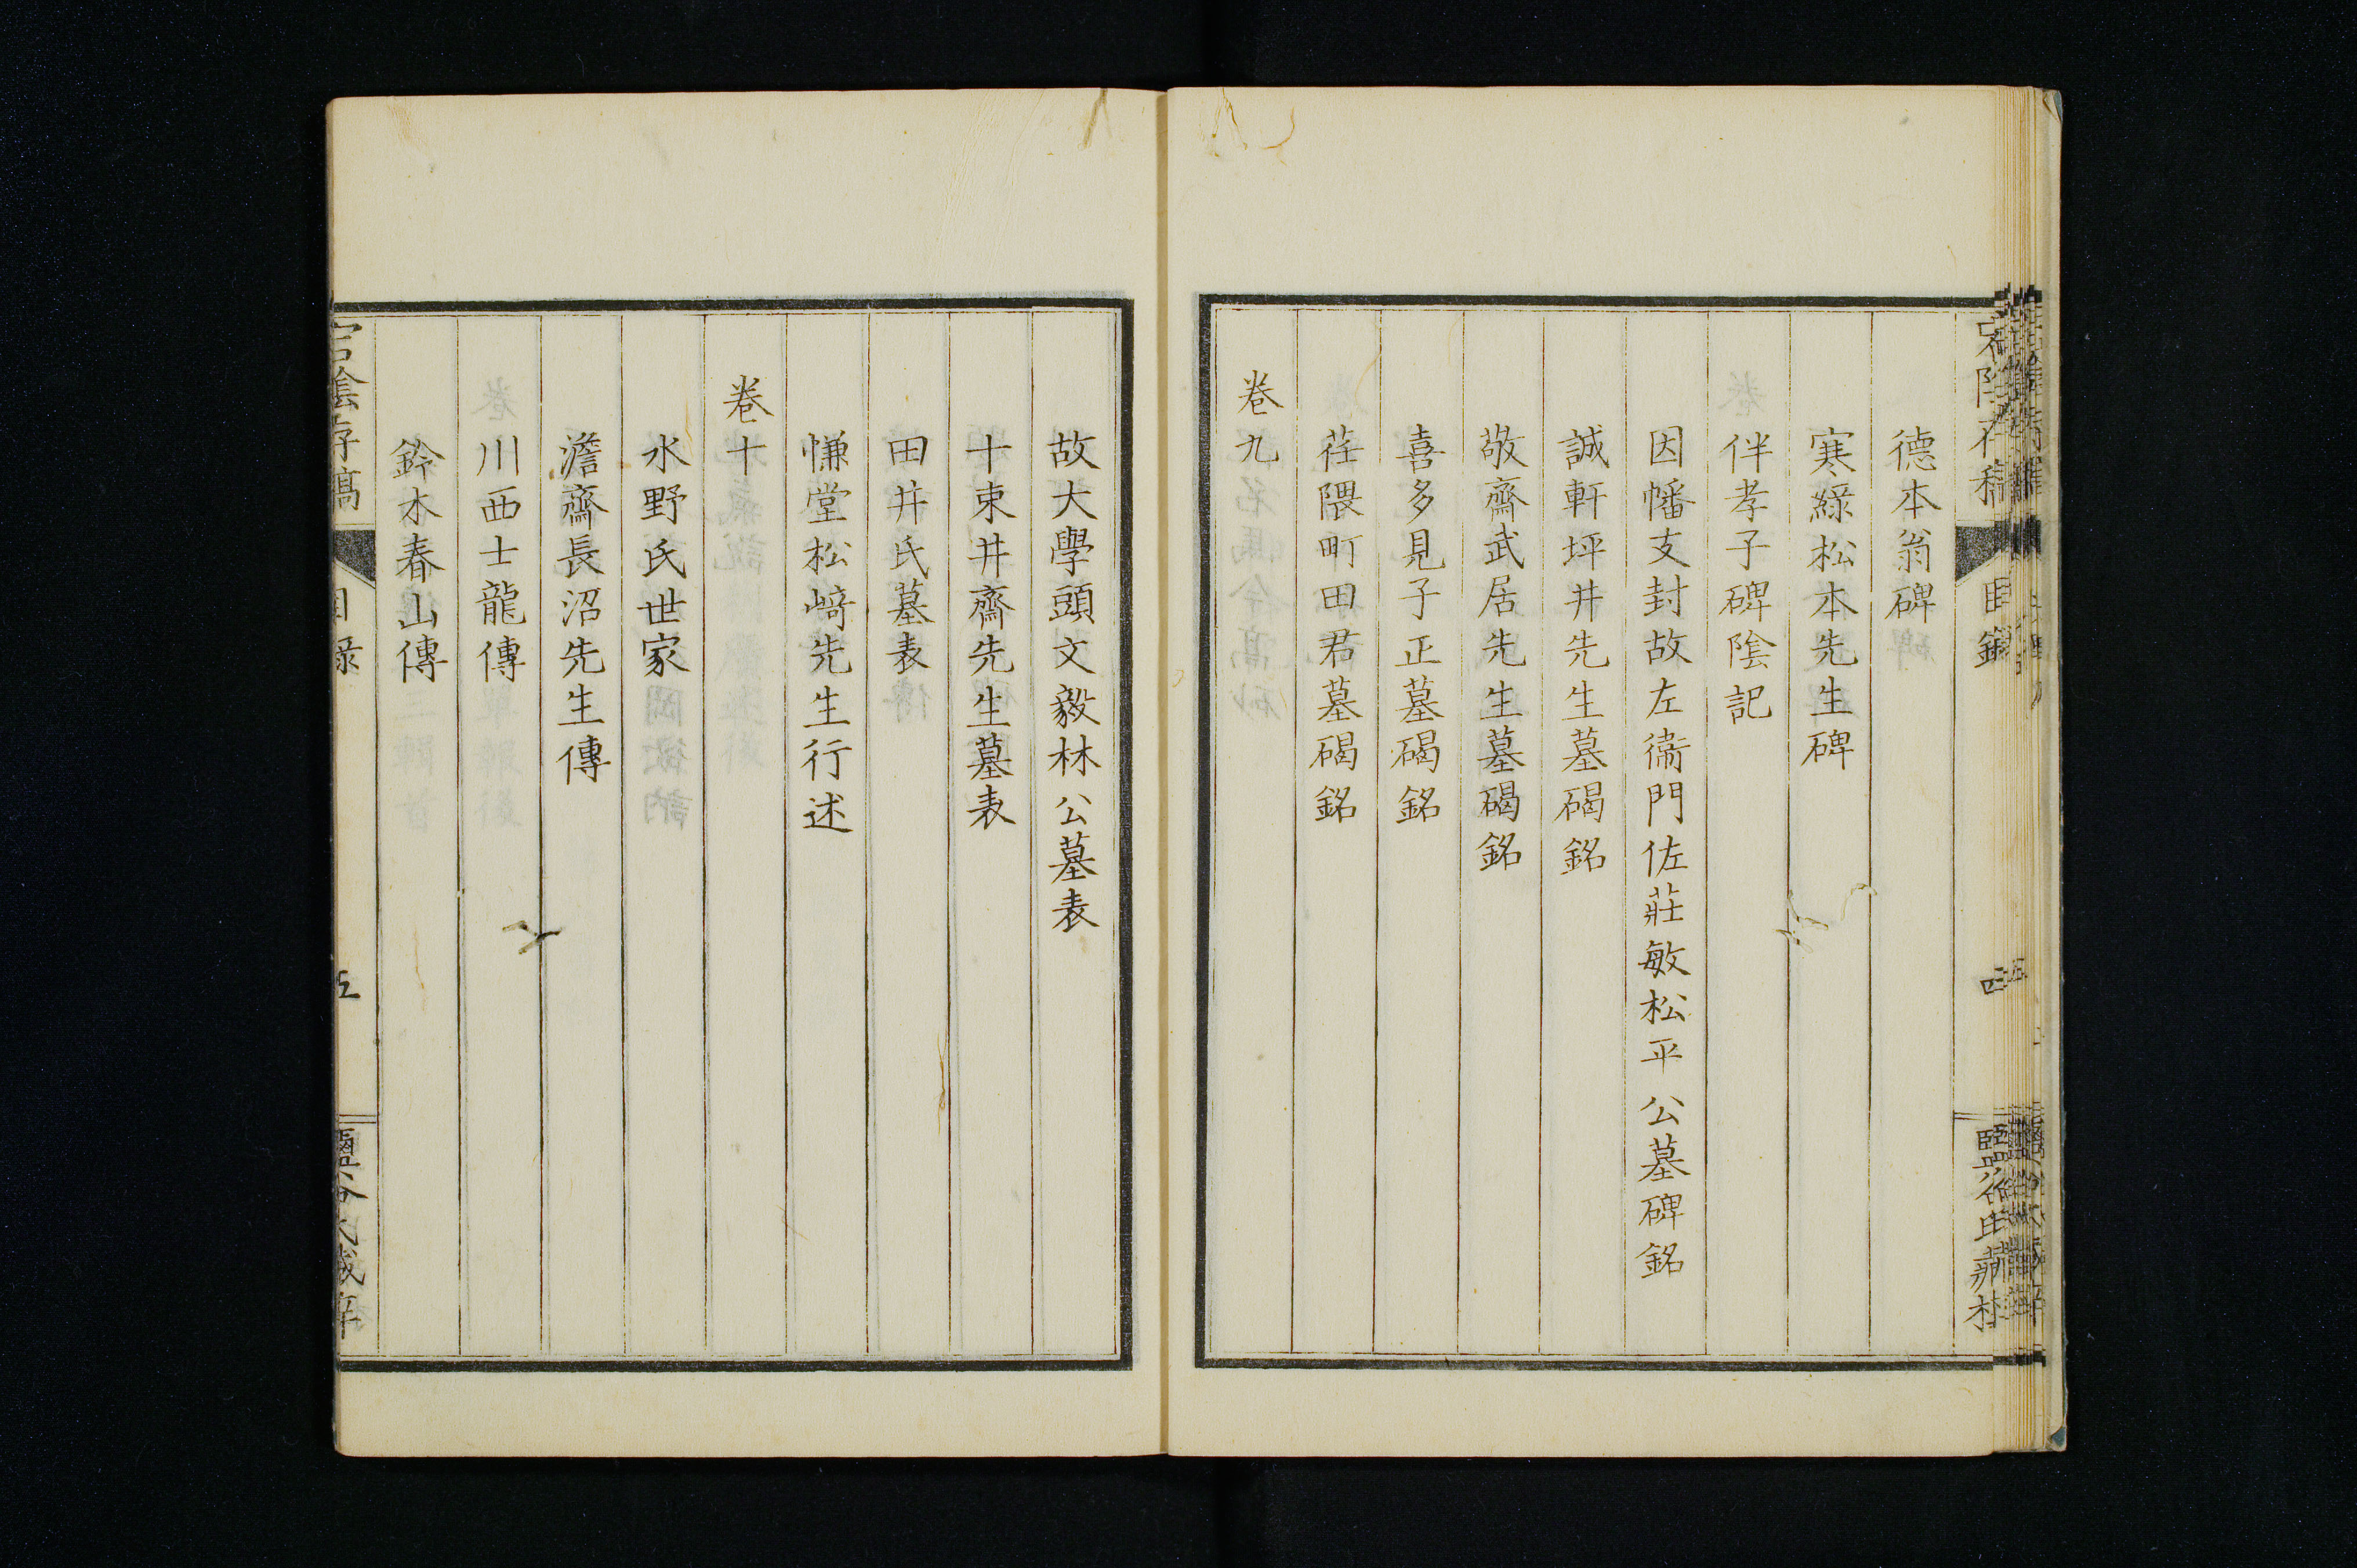 德本翁碑
寒緑松本先生碑
伴孝子碑陰記
因幡支封故左衞門佐莊敏松平公墓碑銘
誠軒坪井先生墓碣銘
敬齋武居先生墓碣銘
喜多見子正墓碣銘
荏隈町田君墓碣銘
卷九
故大學頭文毅林公墓表
十束井齋先生墓表
田井氏墓表
慊堂松﨑先生行述
卷十
水野氏世家
澹齋長沼先生傳
川西士龍傳
鈴木春山傳